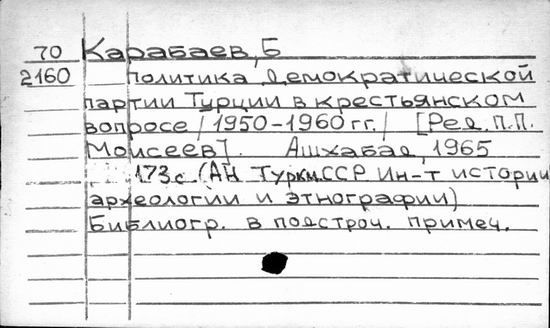 70 Карабаев, Б
2160 Политика Демократической
партии Турции в крестьянском
вопросе /1950-1960 гг./ [Ред. П.П.
Моисеев]. Ашхабад, 1965
173 с (АН Туркм.ССР Ин-т истории
археологии и этнографии)
Библиогр. в подстроч. примеч.